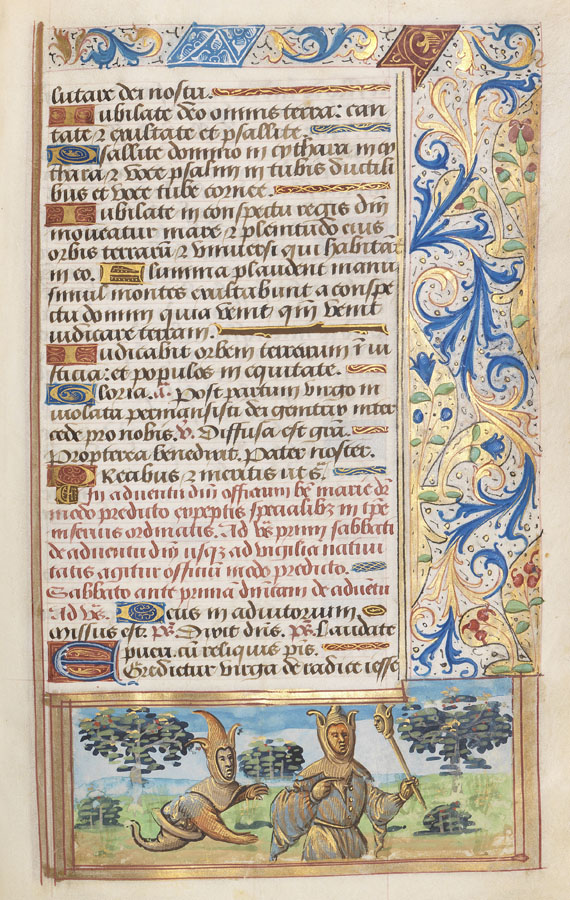 lutare dei nostri.
Jubilate deo omnis terra: can
tate ⁊ exultate et psallite.
Psallite domino in cythara in cy
thara ⁊ voce psalmi in tubis ductili
bus et voce tube cornee.
Jubilate in conspectu regis dñi
moveatur mare ⁊ plenitudo eius
orbis terrarũ ⁊ universi qui habitãt
in eo. Flumina plaudent manu
simul montes exultabunt a conspe
ctu domini quia venit qm̃ venit
iudicare terram.
Judicabit orbem terrarum ĩ iu
sticia: et populos in equitate.
Gloria. Post partum virgo in
violata permansisti dei genitrix inter
cede pro nobis. v̄. Diffusa est grã.
Propterea benedixit. Pater noster.
Precibus ⁊ meritis ut s̃.
In adventu dñi officium bẽ marie dr̃
modo predicto exceptis specialibz in ipẽ
inferius ordinatis. Ad vẽs primi sabbati
de adventu dñi usqz ad vigiliã nativi
tatis agitur officiũ modo predicto.
Sabbato ante primã dñicam de adventu
Ad vẽs. Deus in adiutorium
missus est. ps̃. Dixit dñs. ps̃. Laudate
pueri. cũ reliquis p̃is.
Egredietur virga de radice iesse